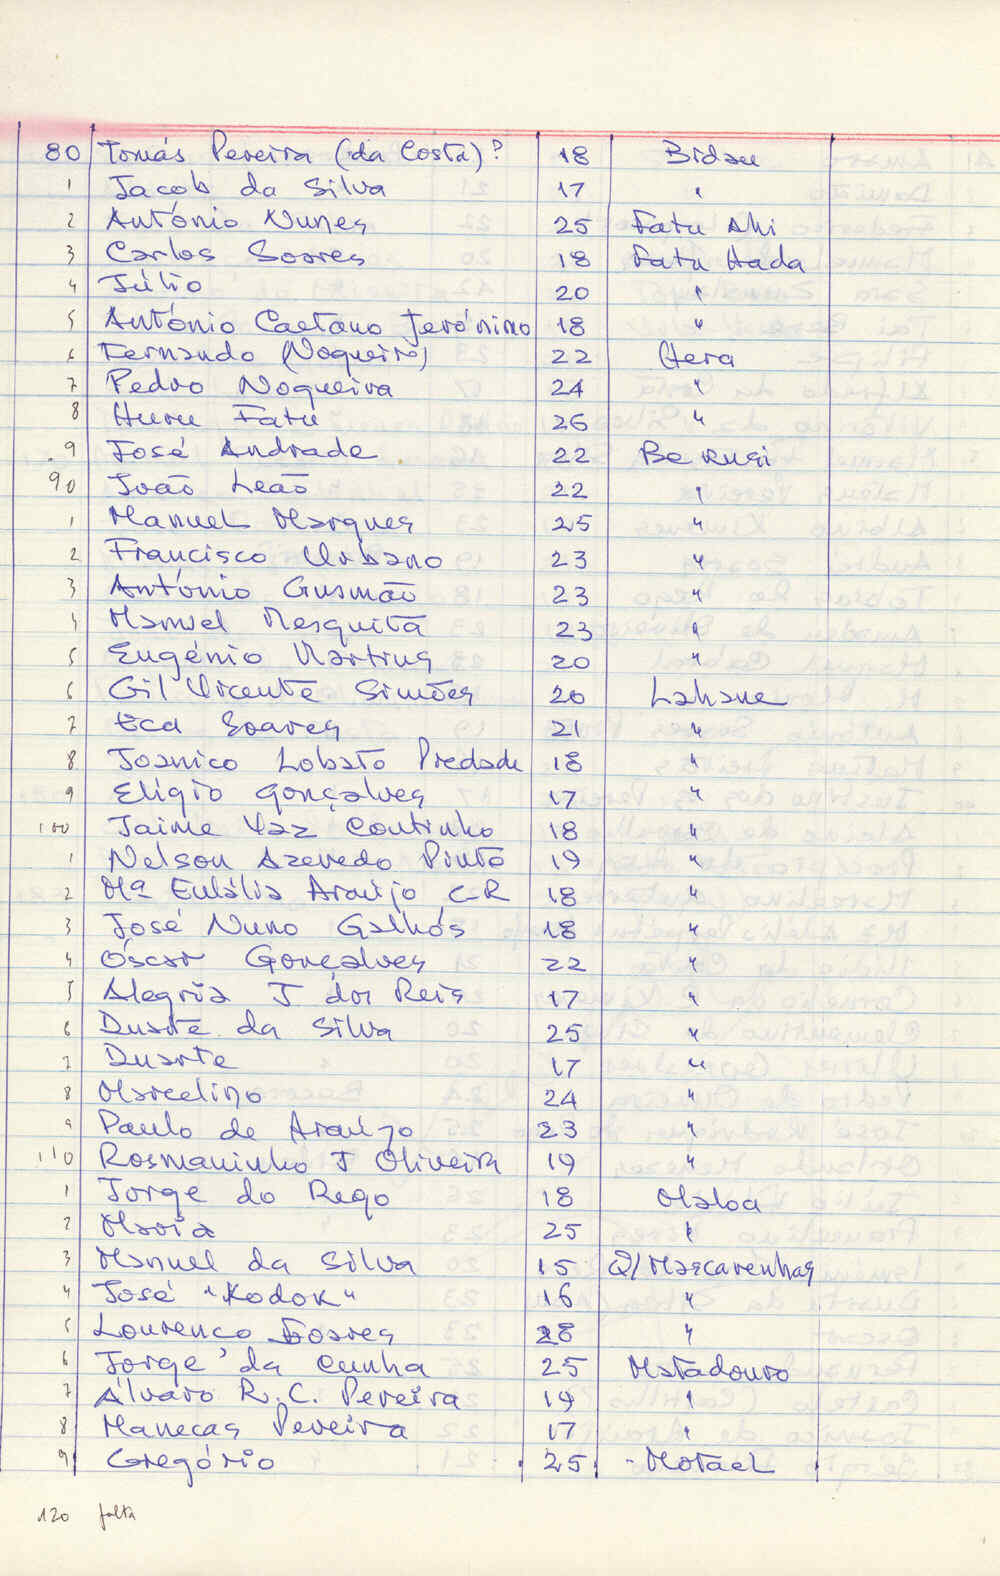 80 Tomás Pereira (da Costa)? 18 Bidau
1 Jacob da Silva 17 "
2 António Nunes 25 Fatu Ahi
3 Carlos Soares 18 Fatu Hada
4 Júlio 20 "
5 António Caetano Jerónimo 18 "
6 Fernando (Nogueira) 22 Hera
7 Pedro Nogueira 24 "
8 Huru Fatu 26 "
9 José Andrade 22 Be Kusi
90 João Leão 22 "
1 Manuel Marques 25 "
2 Francisco Urbano 23 "
3 António Gusmão 23 "
4 Manuel Mesquita 23 "
5 Eugénio Martins 20 "
6 Gil Vicente Simões 20 Lahane
7 Eca Soares 21 "
8 Joanico Lobato Piedade 18 "
9 Eligio Gonçalves 17 "
100 Jaime Vaz Coutinho 18 "
1 Nelson Azevedo Pinto 19 "
2 Mª Eulália Araújo C-R 18 "
3 José Nuno Galhós 18 "
4 Óscar Gonçalves 22 "
5 Alegria J dos Reis 17 "
6 Duarte da Silva 25 "
7 Duarte 17 "
8 Marcelino 24 "
9 Paulo de Araújo 23 "
110 Rosmaninho J Oliveira 19 "
1 Jorge do Rego 18 Maloa
2 Maria 25 "
3 Manuel da Silva 15 Q/Mascarenhas
4 José "Kodok" 16 "
5 Lourenco Soares 28 "
6 Jorge da Cunha 25 Matadouro
7 Álvaro R. C. Pereira 19 "
8 Manecas Pereira 17 "
9 Gregório 25 - Motael
120 falta